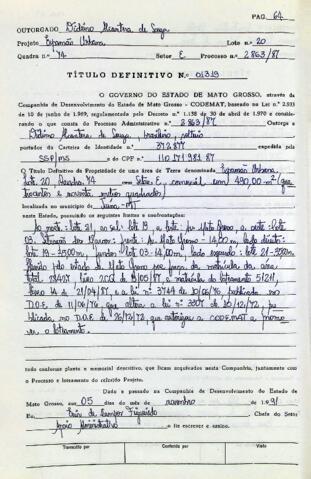 PAG. 64
OUTORGADO Didômo Alcantara de Souza
Projeto Expansão Urbana Lote n.º 20
Quadra n.º 74 Setor E Processo n.º 2863/87
TÍTULO DEFINITIVO N.º 01319
O GOVERNO DO ESTADO DE MATO GROSSO, através da
Companhia de Desenvolvimento do Estado de Mato Grosso - CODEMAT, baseado na Lei n.º 2.933
de 10 de junho de 1969, regulamentado pelo Decreto n.º 1.138 de 30 de abril de 1970 e consi-
rando o que consta do Processo Administrativo n.º 2863/87 Outorga a
Alcantara de Souza, brasileiro, solteiro
portador da Carteira de Identidade n.º 372877 expedida pela
SSP/MS e do CPF n.º
O Título Definitivo da Propriedade de uma área de Terra denominada Expansão Urbana,
Lote 20, Quadra 74 com Setor E, comercial com 490,00 m² (qua
trocentos e noventa metros quadrados)
localizada no município de Juína - MT
neste Estado, possuindo os seguintes limites e confrontações:
Ao norte: lote 21, ao sul: lote 19, a leste: Av. Mato Grosso, a oeste: lote
03. Frente: Av. Mato Grosso - 14,00 m, lado direito:
lote 19 - 35,00 m, fundos: lote 03 - 14,00 m, lado esquerdo: lote 21 - 35,00 m
pelo estado de Mato Grosso da matrícula da área
livro e matrícula do loteamento 51211,
de 21/04/87, e a lei n.º 3744 de 10/06/76, publicada no
D.O.E de 11/06/76, que altera a lei n.º 3307 de 18/12/72, pu
blicada, no D.O.E de 26/12/72 que autoriza a CODEMAT a promo
ver o loteamento.
tudo conforme planta e memorial descritivo, que ficam arquivados nesta Companhia, juntamente com
o Processo e loteamento do referido Projeto.
Dado e passado na Companhia de Desenvolvimento do Estado de
Mato Grosso, aos 05 dias do mês de novembro de 1.991
Eu, de Campos Figueiredo Chefe do Setor
Apoio Administrativo o fiz escrever e assino.
Transcrito por Conferido por Visto